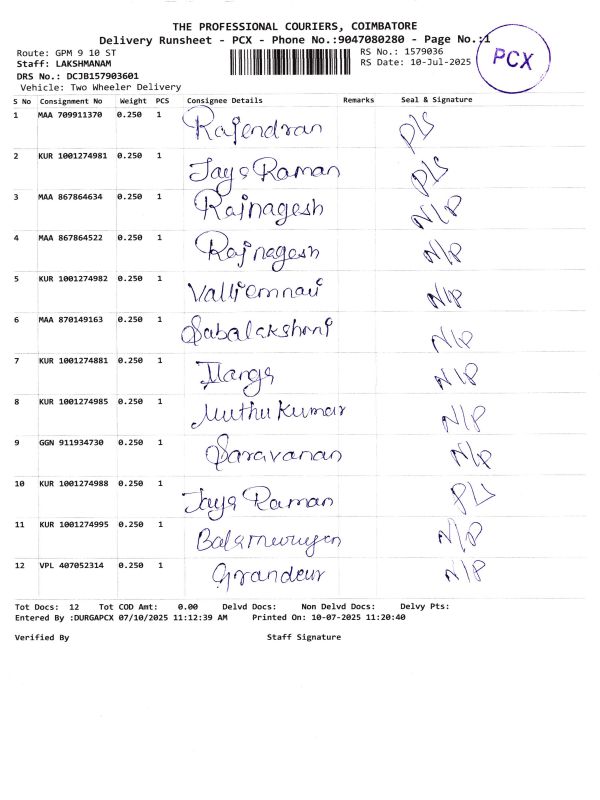 THE PROFESSIONAL COURIERS, COIMBATORE
Delivery Runsheet - PCX - Phone No.:9047080280 - Page No.:1
Route: GPM 9 10 ST RS No.: 1579036
Staff: LAKSHMANAM RS Date: 10-Jul-2025
PCX
DRS No.: DCJB157903601
Vehicle: Two Wheeler Delivery
S No Consignment No Weight PCS Consignee Details Remarks Seal & Signature
1 MAA 709911370 0.250 1 Rajendran P/S
2 KUR 1001274981 0.250 1 Jaya Raman P/S
3 MAA 867864634 0.250 1 Rajnagesh N/P
4 MAA 867864522 0.250 1 Rajnagesh N/P
5 KUR 1001274982 0.250 1 N/P
6 MAA 870149163 0.250 1 N/P
7 KUR 1001274881 0.250 1 N/P
8 KUR 1001274985 0.250 1 Muthu Kumar N/P
9 GGN 911934730 0.250 1 Saravanan N/P
10 KUR 1001274988 0.250 1 Jaya Raman P/S
11 KUR 1001274995 0.250 1 Balamurugan N/P
12 VPL 407052314 0.250 1 Grandeur N/P
Tot Docs: 12 Tot COD Amt: 0.00 Delvd Docs: Non Delvd Docs: Delvy Pts:
Entered By :DURGAPCX 07/10/2025 11:12:39 AM Printed On: 10-07-2025 11:20:40
Verified By Staff Signature